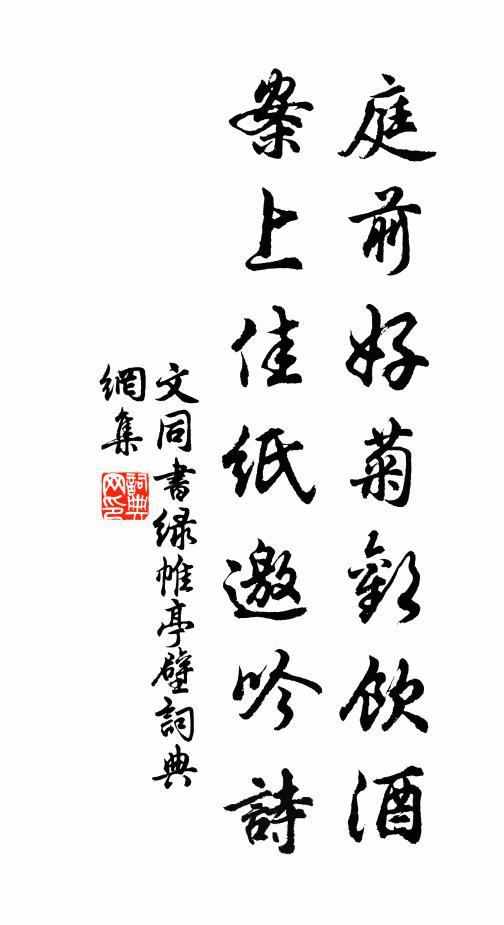 庭前好菊歡飲酒
案上佳紙邀吟詩
文同書緑帷亭壁詞典
網集
詞典网印